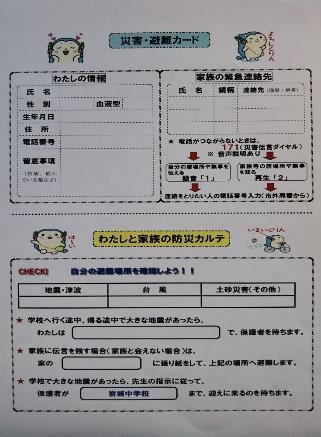 災害・避難カード
わたしの情報
氏 名
性 別 血液型
生年月日
住 所
電話番号
留意事項
家族の緊急連絡先
氏 名 続柄 連絡先
★ 電話がつながらないときは、
171(災害伝言ダイヤル)
※ 音声説明あり
自分の居場所や無事を伝える
録音「1」
家族等の居場所や無事を知る
再生「2」
連絡をとりたい人の電話番号入力(市外局番から)
はーい
わたしと家族の防災カルテ
CHECK! 自分の避難場所を確認しよう!!
地震・津波 台 風 土砂災害(その他)
★ 学校へ行く途中、帰る途中で大きな地震があったら、
わたしは で、保護者を待ちます。
★ 家族に伝言を残す場合(家族と会えない場合)は、
家の に張り紙をして、上記の場所へ避難します。
★ 学校で大きな地震があったら、先生の指示に従って、
保護者が 岩城中学校 まで、迎えに来るのを待ちます。